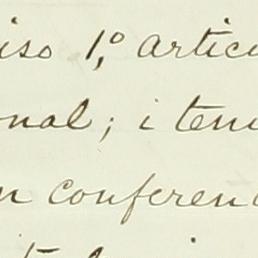 iso 1º, artícu
onal; i teni
n conferen